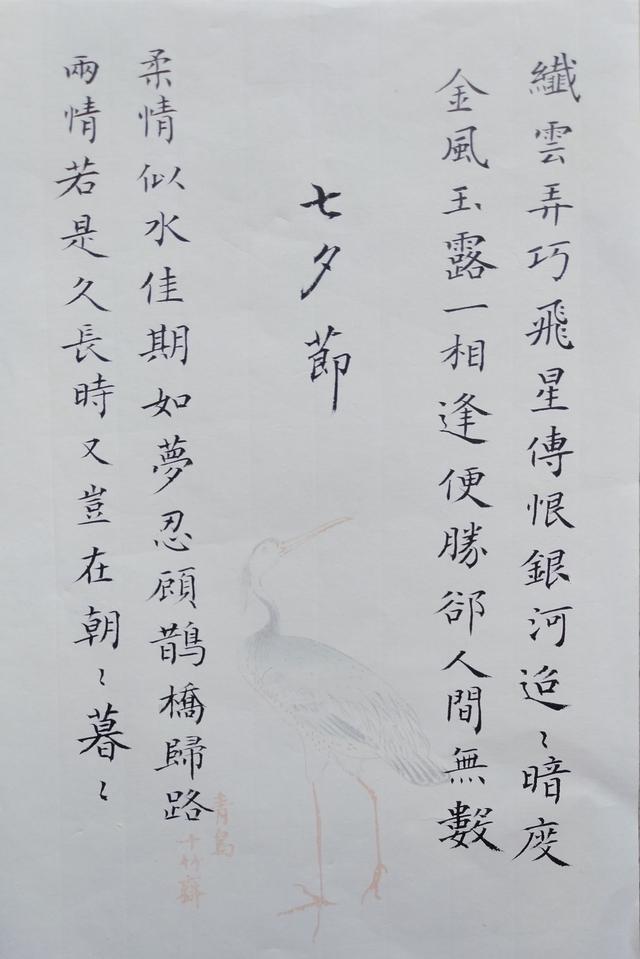 纖雲弄巧飛星傳恨銀河迢〻暗度
金風玉露一相逢便勝卻人間無數
七夕節
柔情似水佳期如夢忍顧鵲橋歸路
兩情若是久長時又豈在朝〻暮〻
青鳥
十竹齋